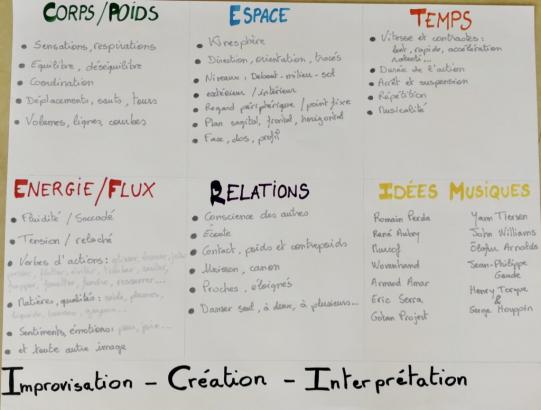 CORPS/POIDS
• Sensations, respirations
• Equilibre, déséquilibre
• Coordination
• Déplacements, sauts, tours
• Volumes, lignes, courbes
ESPACE
• Kinesphère
• Direction, orientation, tracés
• Niveaux : Debout - milieu - sol
• extérieur / intérieur
• Regard périphérique / point fixe
• Plan sagital, frontal, horizontal
• Face, dos, profil
TEMPS
• Vitesse et contrastes :
lent, rapide, accélération
ralenti...
• Durée de l'action
• Arrêt et suspension
• Répétition
• Musicalité
ENERGIE/FLUX
• Fluidité / Saccadé
• Tension / relaché
• Verbes d'actions :
fondre, resserrer...
• Matières, qualités :
• Sentiments, émotions : peur, joie...
• et toute autre image
RELATIONS
• Conscience des autres
• Ecoute
• Contact, poids et contrepoids
• Unisson, canon
• Proches, éloignés
• Danser seul, à deux, à plusieurs...
IDÉES MUSIQUES
Romain Perda
René Aubry
Armand Amar
Eric Serra
Gotan Project
Yann Tiersen
John Williams
Ólafur Arnalds
Jean-Philippe
Goude
Henry Torgue
&
Serge Houppin
Improvisation - Création - Interprétation